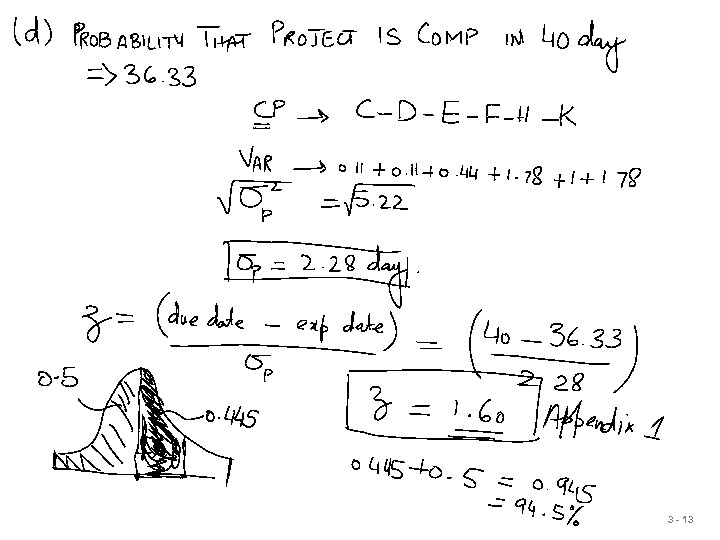 (d) PROBABILITY THAT PROJECT IS COMP IN 40 day
=> 36.33
CP → C-D-E-F-H-K
VAR → 0.11 + 0.11 + 0.44 + 1.78 + 1 + 1.78
√σp² = √5.22
σp = 2.28 day.
z = (due date - exp date) / σp = (40 - 36.33 / 2.28)
0.5
0.445
z = 1.60 Appendix 1
0.445 + 0.5 = 0.945
= 94.5%
3 - 13